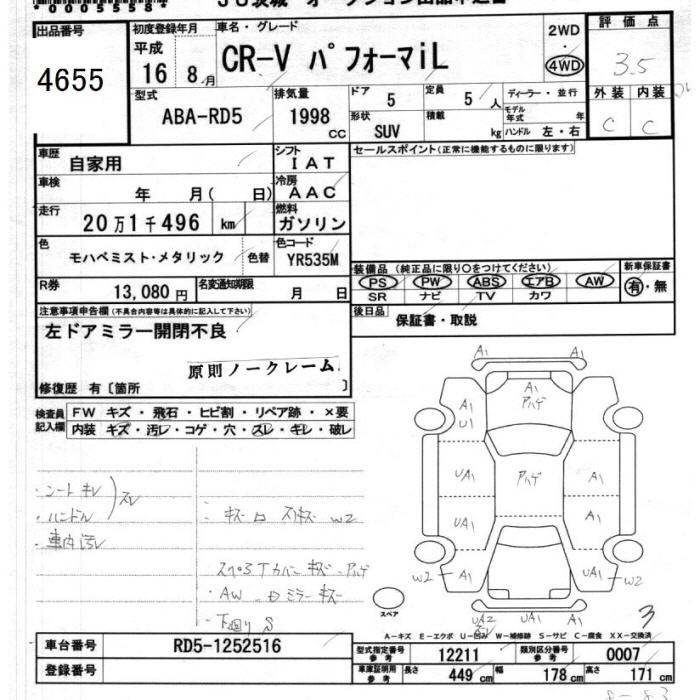 0005558
出品番号
4655
初度登録年月
平成
16 8月
車名・グレード
CR-V パフォーマiL
2WD
・
4WD
評価点
3.5
外装 内装
C C
型式
ABA-RD5
排気量
1998 CC
ドア 5
定員 5人
ディーラー・並行
形状 SUV
積載 kg
モデル年式 年
ハンドル 左・右
車歴 自家用
シフト IAT
セールスポイント(正常に機能するものに限ります)
車検 年 月( 日)
冷房 AAC
走行 20万1千496 km
燃料 ガソリン
色 モハベミスト・メタリック 色替
色コード YR535M
装備品 (純正品に限り○をつけてください)
新車保証書
PS PW ABS エアB AW
有・無
SR ナビ TV カワ
R券 13,080円
名変通知期限 月 日
後日品 保証書・取説
注意事項申告欄(不具合内容等は具体的に記入して下さい)
左ドアミラー開閉不良
原則ノークレーム
修復歴 有〔箇所 〕
検査員記入欄
FW キズ・飛石・ヒビ割・リペア跡・×要
内装 キズ・汚レ・コゲ・穴・スレ・キレ・破レ
・シートキレ
・ハンドル スレ
・車内汚レ
W2
スペSTカバーキズ・アハゲ
・AW
ミラーキズ
・下廻りS
A1
A1 A1 A1
U1 アハゲ
UA1 アハゲ A1
UA1 A1
W2 A1 UA1 W2
スペア
UA2 UA1 A1
3
A-キズ E-エクボ U-凹み W-補修跡 S-サビ C-腐食 XX-交換済
車台番号 RD5-1252516
型式指定番号 参考 12211
類別区分番号 参考 0007
登録番号
車庫証明用 参考
長さ 449cm
幅 178cm
高さ 171cm